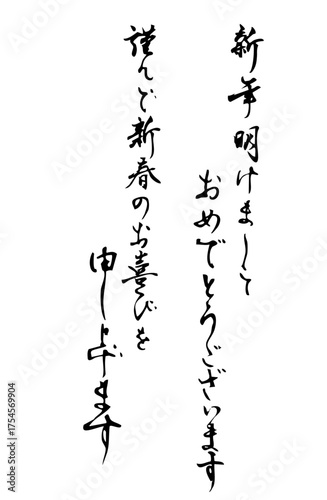 新年明けまして
おめでとうございます
謹んで新春のお喜びを
申し上げます
Adobe Stock | #1754569904